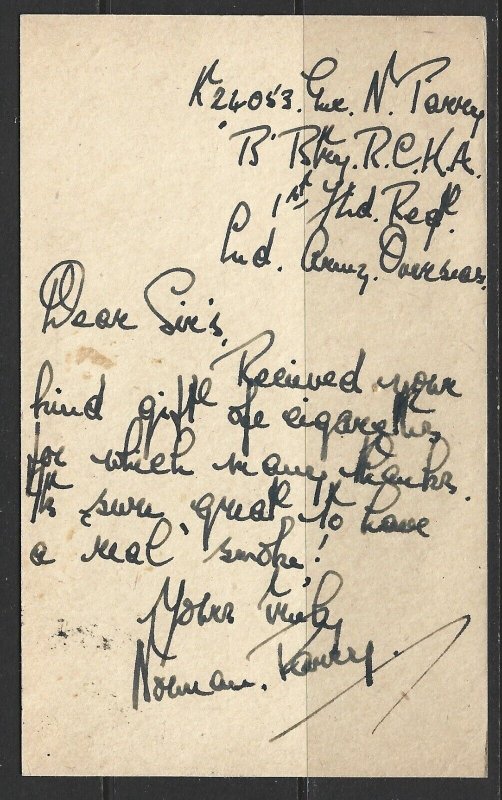 K24053. Gnr. N. Parry
"B" Btry. R.C.H.A.
1st Fld. Regt.
Cnd. Army. Overseas.
Dear Sir's,
Recieved your
kind gift of cigarettes,
for which many thanks.
It's 'sure great' to have
a 'real' smoke!
Yours Truly
Norman. Parry.